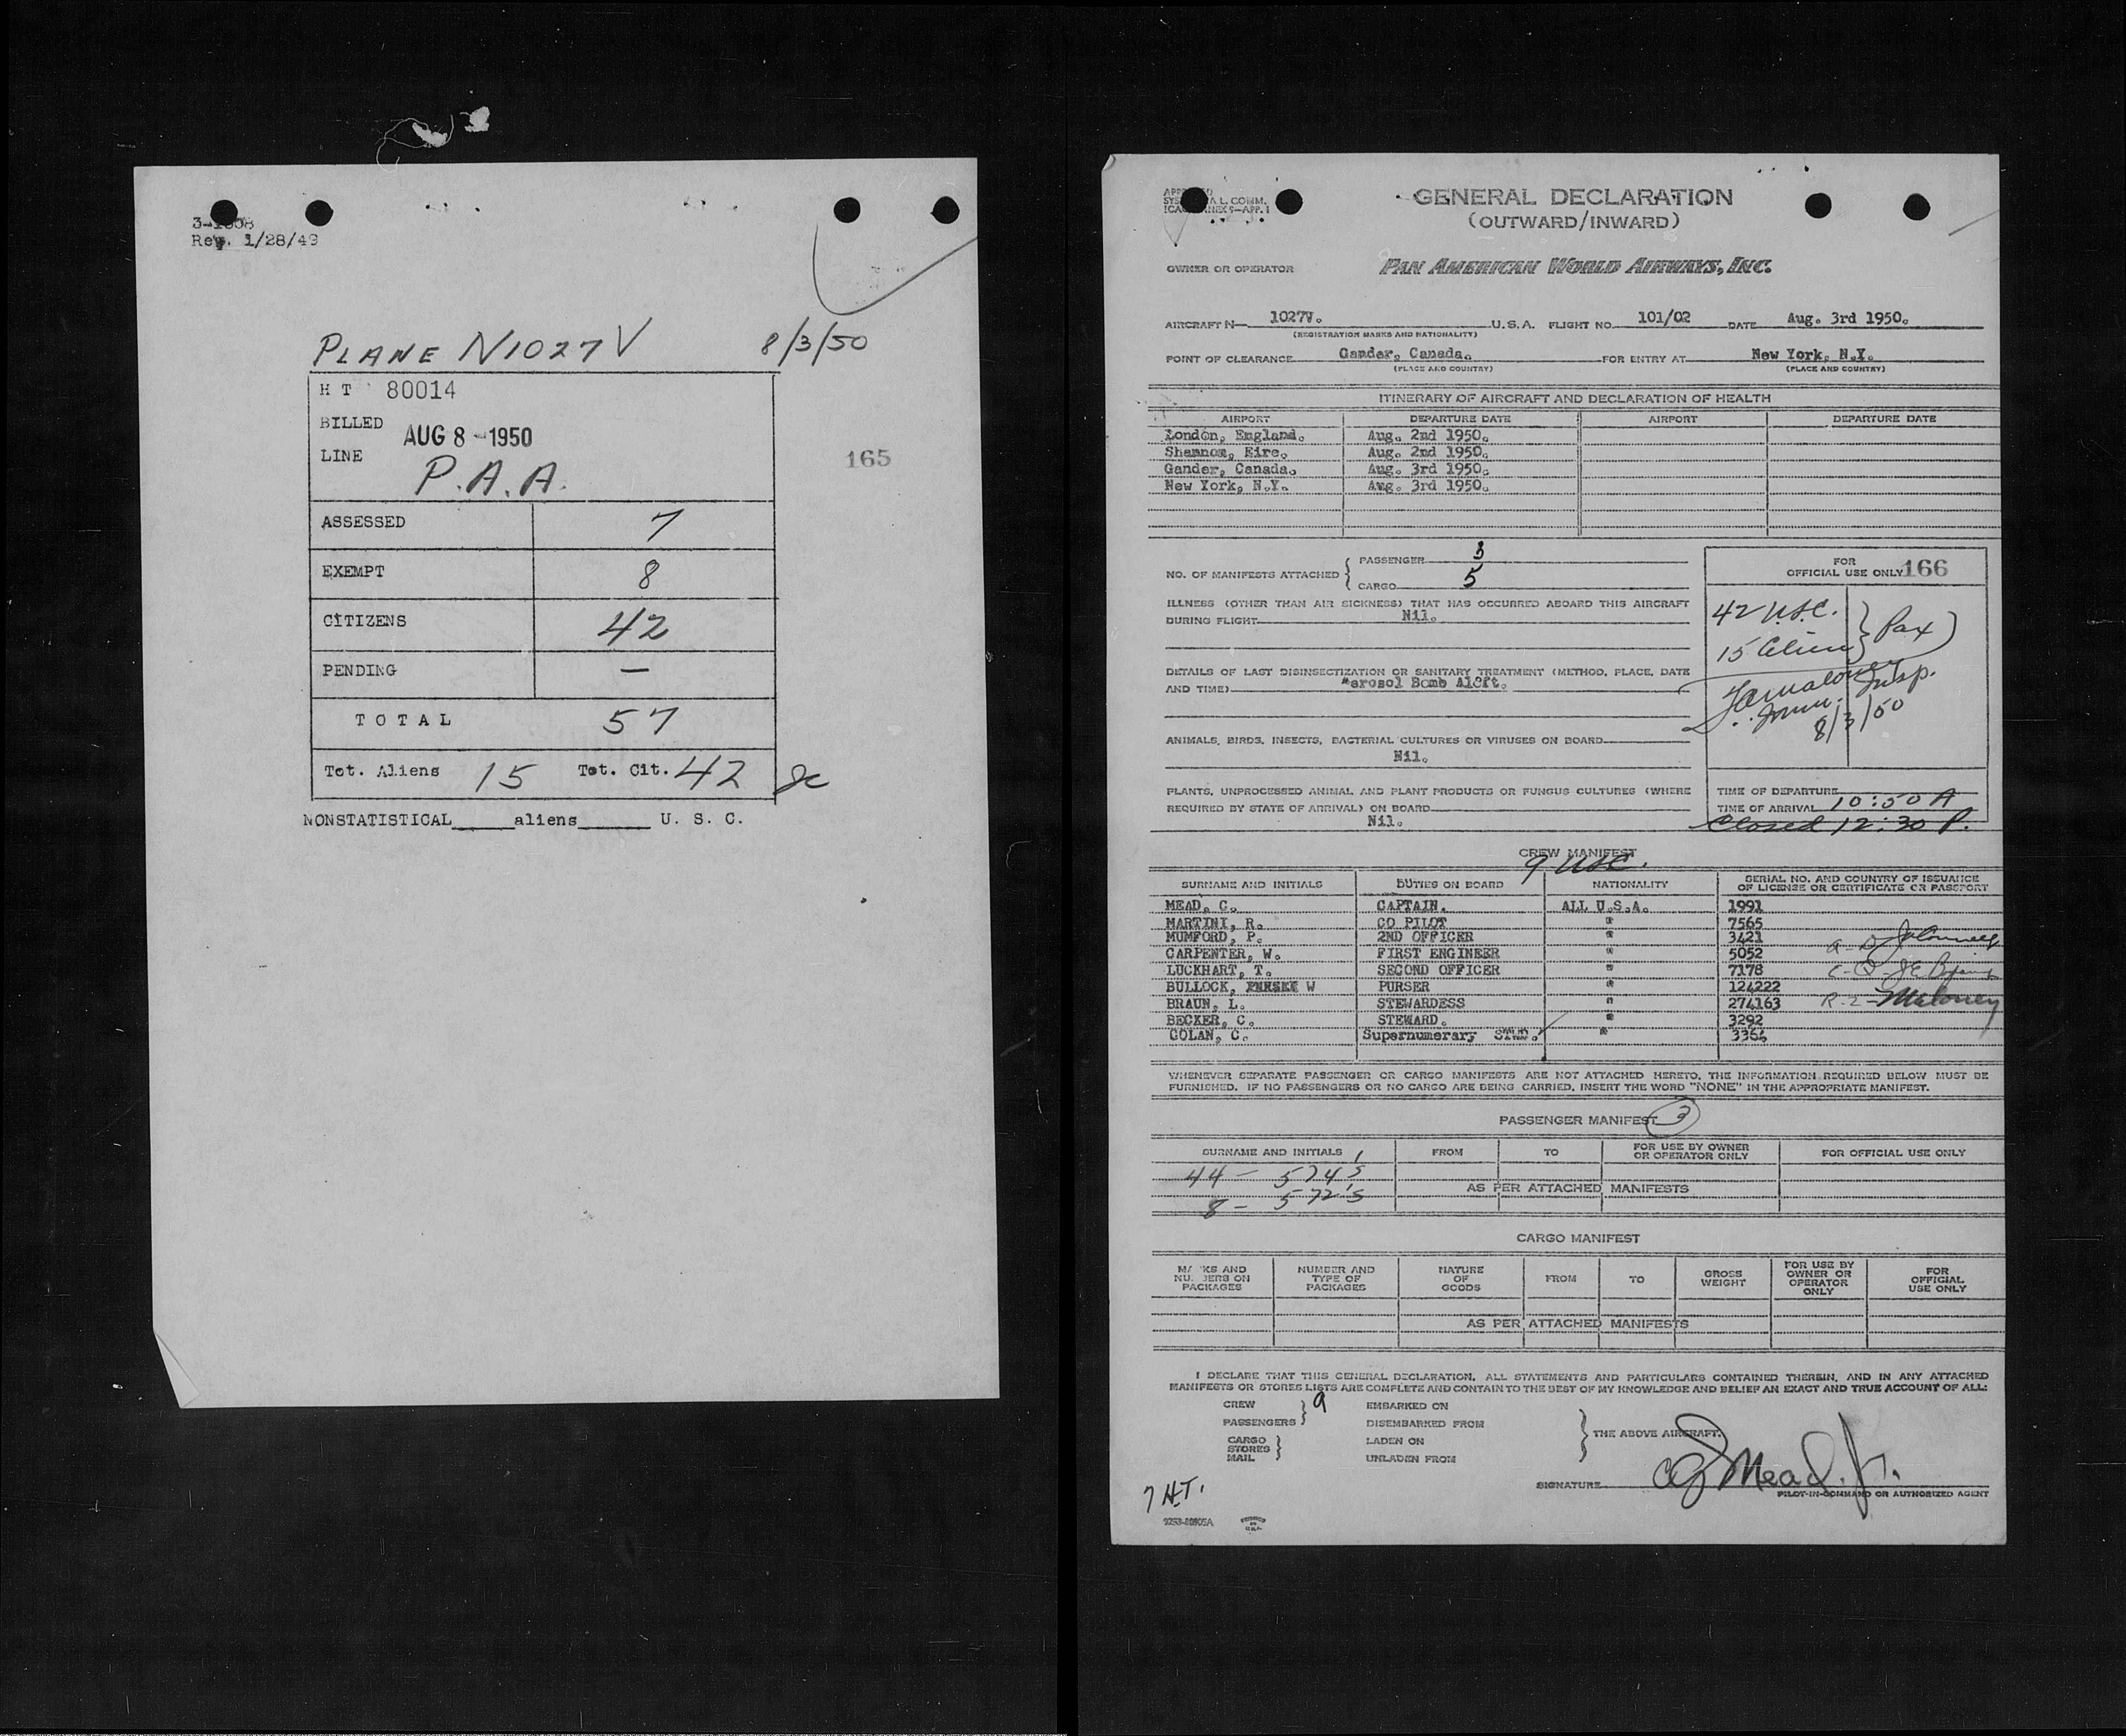 Rev. 1/28/49
PLANE N1027V 8/3/50
H T 80014
BILLED
AUG 8 - 1950
LINE
P.A.A.
165
ASSESSED 7
EXEMPT 8
CITIZENS 42
PENDING —
TOTAL 57
Tot. Aliens 15 Tot. Cit. 42
NONSTATISTICAL_____aliens______ U. S. C.
GENERAL DECLARATION
(OUTWARD/INWARD)
OWNER OR OPERATOR PAN AMERICAN WORLD AIRWAYS, INC.
AIRCRAFT N— 1027V. U.S.A. FLIGHT NO. 101/02 DATE Aug. 3rd 1950.
(REGISTRATION MARKS AND NATIONALITY)
POINT OF CLEARANCE Gander, Canada. FOR ENTRY AT New York, N.Y.
(PLACE AND COUNTRY) (PLACE AND COUNTRY)
ITINERARY OF AIRCRAFT AND DECLARATION OF HEALTH
AIRPORT DEPARTURE DATE AIRPORT DEPARTURE DATE
London, England. Aug. 2nd 1950.
Shannon, Eire. Aug. 2nd 1950.
Gander, Canada. Aug. 3rd 1950.
New York, N.Y. Aug. 3rd 1950.
NO. OF MANIFESTS ATTACHED
PASSENGER 3
CARGO 5
FOR
OFFICIAL USE ONLY 166
42 USC.
15 Alien } Pax
Insp.
8/3/50
ILLNESS (OTHER THAN AIR SICKNESS) THAT HAS OCCURRED ABOARD THIS AIRCRAFT
DURING FLIGHT Nil.
DETAILS OF LAST DISINSECTIZATION OR SANITARY TREATMENT (METHOD, PLACE, DATE
AND TIME) Aerosol Bomb Aloft.
ANIMALS, BIRDS, INSECTS, BACTERIAL CULTURES OR VIRUSES ON BOARD
Nil.
PLANTS, UNPROCESSED ANIMAL AND PLANT PRODUCTS OR FUNGUS CULTURES (WHERE
REQUIRED BY STATE OF ARRIVAL) ON BOARD
Nil.
TIME OF DEPARTURE
TIME OF ARRIVAL 10:50 A
Closed 12:30 P.
CREW MANIFEST
9 USC.
SURNAME AND INITIALS DUTIES ON BOARD NATIONALITY SERIAL NO. AND COUNTRY OF ISSUANCE
OF LICENSE OR CERTIFICATE OR PASSPORT
MEAD, C. CAPTAIN. ALL U.S.A. 1991
MARTINI, R. CO PILOT " 7565
MUMFORD, P. 2ND OFFICER " 3421
CARPENTER, W. FIRST ENGINEER " 5052
LUCKHART, T. SECOND OFFICER " 7178
BULLOCK, W PURSER " 124222
BRAUN, L. STEWARDESS " 274163 Maloney
BECKER, C. STEWARD. " 3292
COLAN, C. Supernumerary " 3364
WHENEVER SEPARATE PASSENGER OR CARGO MANIFESTS ARE NOT ATTACHED HERETO, THE INFORMATION REQUIRED BELOW MUST BE
FURNISHED. IF NO PASSENGERS OR NO CARGO ARE BEING CARRIED, INSERT THE WORD "NONE" IN THE APPROPRIATE MANIFEST.
PASSENGER MANIFEST 3
SURNAME AND INITIALS FROM TO FOR USE BY OWNER
OR OPERATOR ONLY FOR OFFICIAL USE ONLY
44 — 574's
AS PER ATTACHED MANIFESTS
8 — 572's
CARGO MANIFEST
MARKS AND
NUMBERS ON
PACKAGES NUMBER AND
TYPE OF
PACKAGES NATURE
OF
GOODS FROM TO GROSS
WEIGHT FOR USE BY
OWNER OR
OPERATOR
ONLY FOR
OFFICIAL
USE ONLY
AS PER ATTACHED MANIFESTS
I DECLARE THAT THIS GENERAL DECLARATION, ALL STATEMENTS AND PARTICULARS CONTAINED THEREIN, AND IN ANY ATTACHED
MANIFESTS OR STORES LISTS ARE COMPLETE AND CONTAIN TO THE BEST OF MY KNOWLEDGE AND BELIEF AN EXACT AND TRUE ACCOUNT OF ALL:
CREW 9 EMBARKED ON
PASSENGERS DISEMBARKED FROM
THE ABOVE AIRCRAFT.
CARGO LADEN ON
STORES
MAIL UNLADEN FROM
SIGNATURE CG Mead Jr.
PILOT-IN-COMMAND OR AUTHORIZED AGENT
7 H.T.